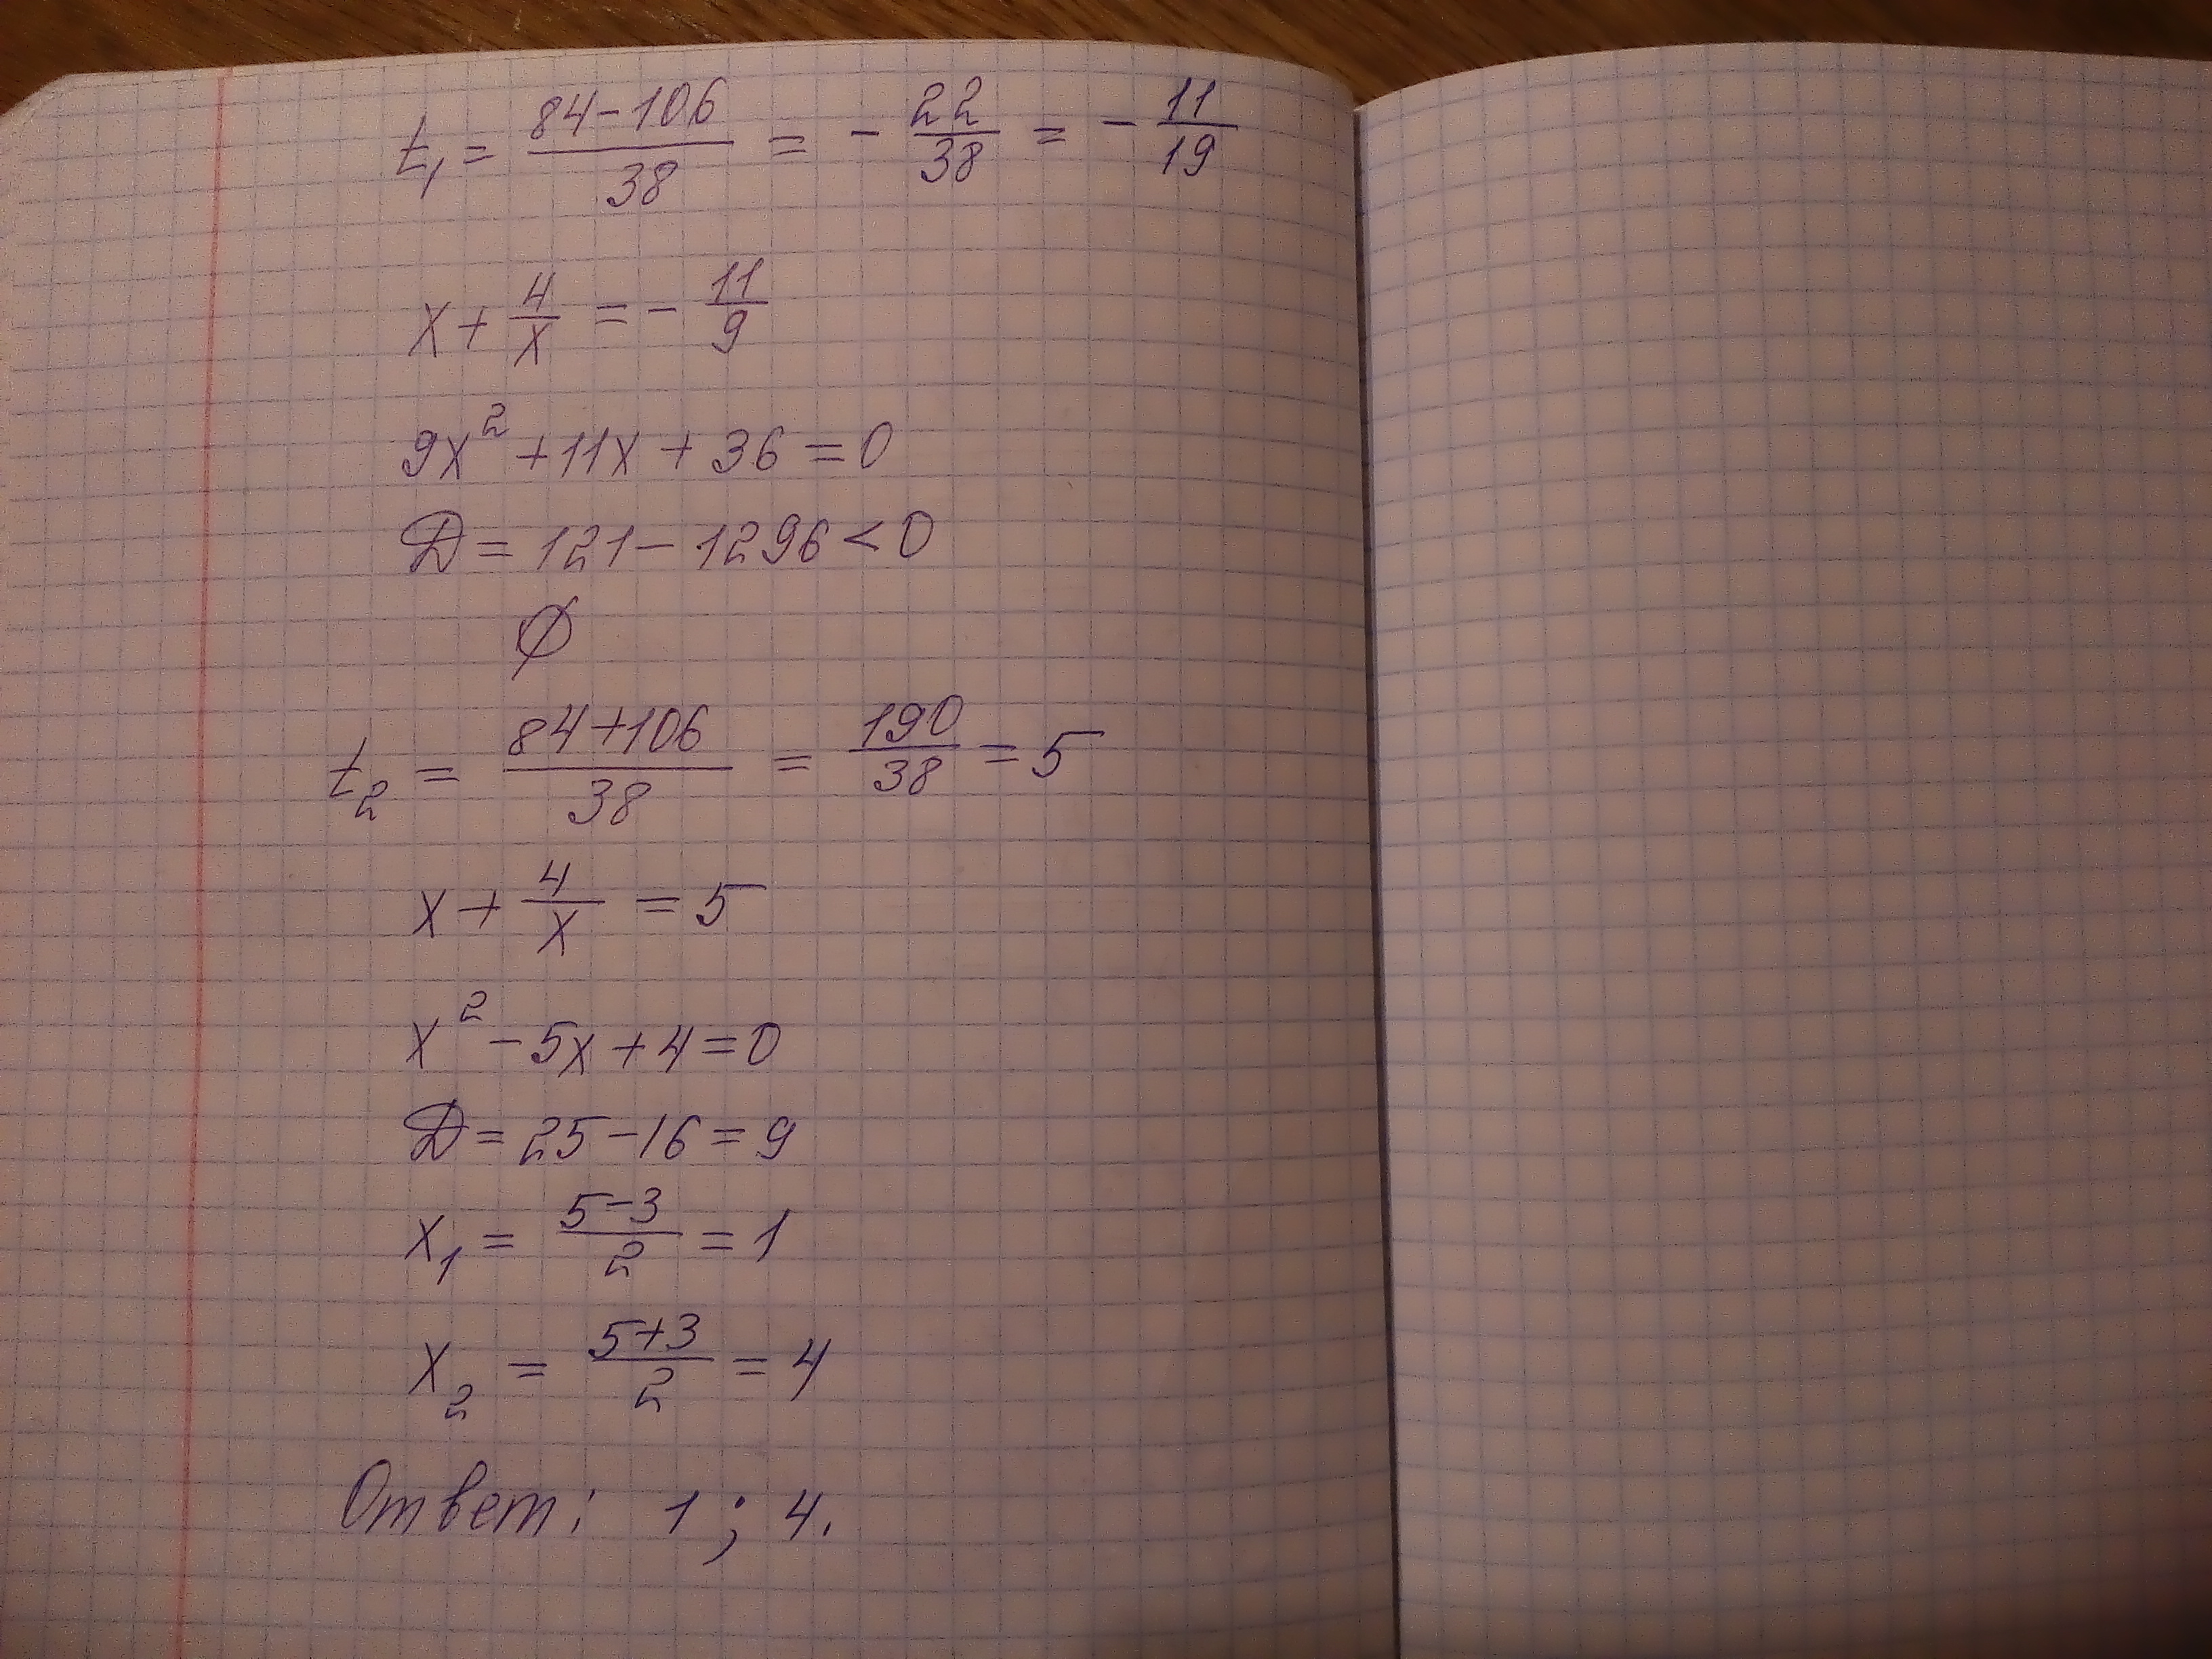 t₁ = (84-106)/38 = -22/38 = -11/19
x + 4/x = -11/9
9x² + 11x + 36 = 0
D = 121 - 1296 < 0
∅
t₂ = (84+106)/38 = 190/38 = 5
x + 4/x = 5
x² - 5x + 4 = 0
D = 25 - 16 = 9
x₁ = (5-3)/2 = 1
x₂ = (5+3)/2 = 4
Ответ: 1; 4.